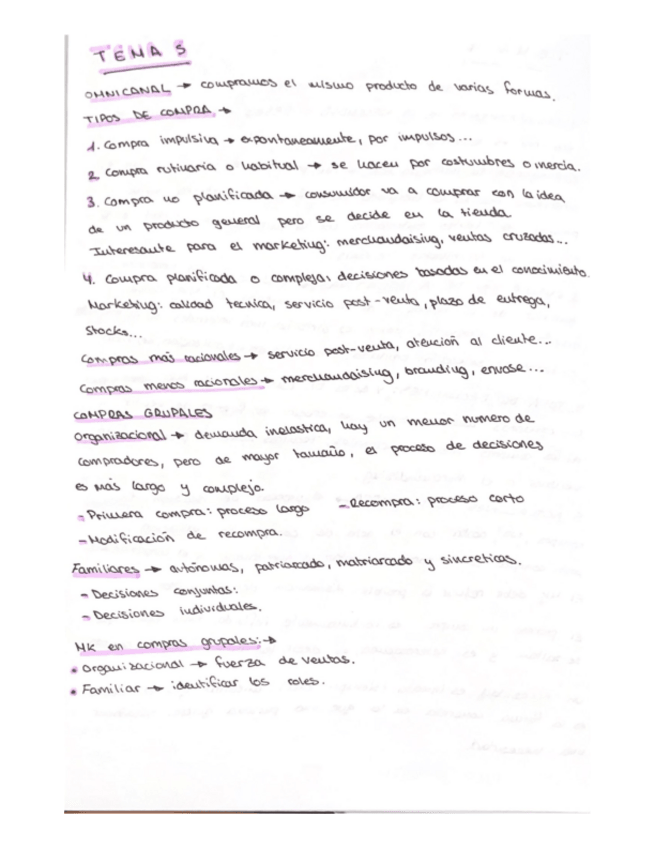 TEMA 5
OMNICANAL → compramos el mismo producto de varias formas.
TIPOS DE COMPRA →
1. Compra impulsiva → expontaneamente, por impulsos...
2. Compra rutinaria o habitual → se hacen por costumbres o inercia.
3. Compra no planificada → consumidor va a comprar con la idea
de un producto general pero se decide en la tienda
Interesante para el marketing: merchandaising, ventas cruzadas...
4. Compra planificada o compleja: decisiones basadas en el conocimiento.
Marketing: calidad tecnica, servicio post-venta, plazo de entrega,
stocks...
Compras más racionales → servicio post-venta, atención al cliente...
Compras menos racionales → merchandaising, branding, envase...
COMPRAS GRUPALES
Organizacional → demanda inelastica, hay un menor numero de
compradores, pero de mayor tamaño, el proceso de decisiones
es más largo y complejo.
- Primera compra: proceso largo - Recompra: proceso corto
- Modificación de recompra.
Familiares → autónomas, patriarcado, matriarcado y sincreticas.
- Decisiones conjuntas:
- Decisiones individuales.
MK en compras grupales: →
• Organizacional → fuerza de ventas.
• Familiar → identificar los roles.